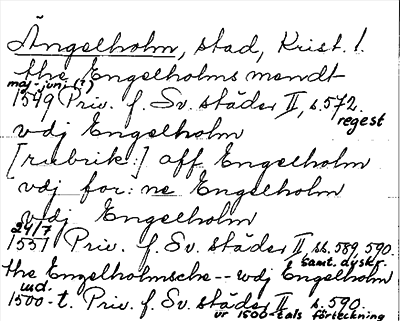 Ängelholm, stad, Krist. l.
the Engelholms mendt
maj-juni (?)
1549 Priv. f. Sv. städer II, s. 572.
regest
vdj Engelholm
[rubrik:] aff Engelholm
vdj for: ne Engelholm
vdj Engelholm
24/7
1551 Priv. f. Sv. städer II ss. 589, 590.
samt. dyskr.
the Engelholmsche -- wdj Engelholm
ud.
1500-t. Priv. f. Sv. städer II s. 590.
ur 1500-tals förteckning